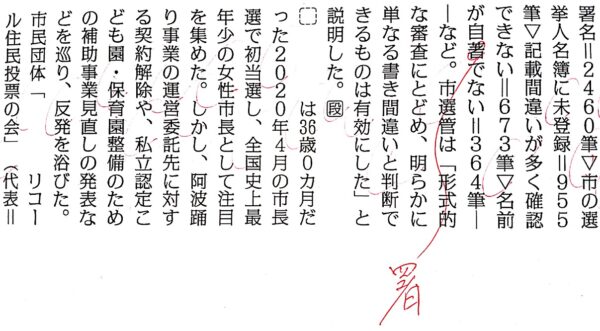 署名＝2460筆▽市の選
挙人名簿に未登録＝955
筆▽記載間違いが多く確認
できない＝673筆▽名前
が自著でない＝364筆―
―など。市選管は「形式的
な審査にとどめ、明らかに
単なる書き間違いと判断で
きるものは有効にした」と
説明した。段
は36歳0カ月だ
った2020年4月の市長
選で初当選し、全国史上最
年少の女性市長として注目
を集めた。しかし、阿波踊
り事業の運営委託先に対す
る契約解除や、私立認定こ
ども園・保育園整備のため
の補助事業見直しの発表な
どを巡り、反発を浴びた。
市民団体「　　リコー
ル住民投票の会」（代表＝
署